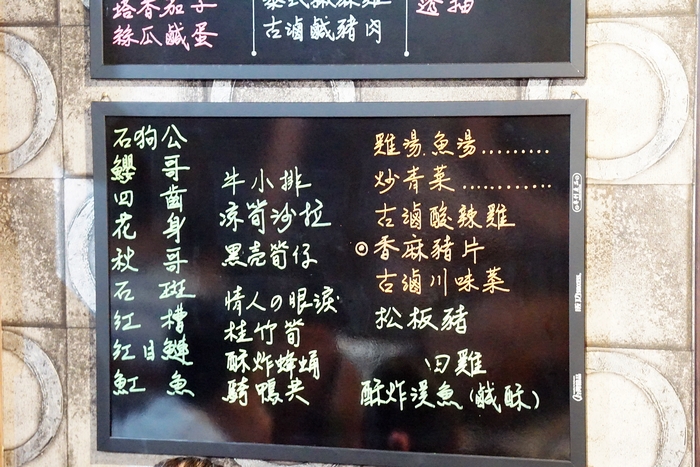 塔香茄子
絲瓜鹹蛋
泰式椒麻雞
古滷鹹豬肉
透抽
石狗公
鸚哥
四齒
花身
秋哥
石斑
紅糟
紅目鰱
魟魚
牛小排
凉筍沙拉
黑壳筍仔
情人の眼淚
桂竹筍
酥炸蜂蛹
騎鴨共
雞湯.魚湯.........
炒青菜............
古滷酸辣雞
◎香麻豬片
古滷川味菜
松板豬
田雞
酥炸溪魚(鹹酥)